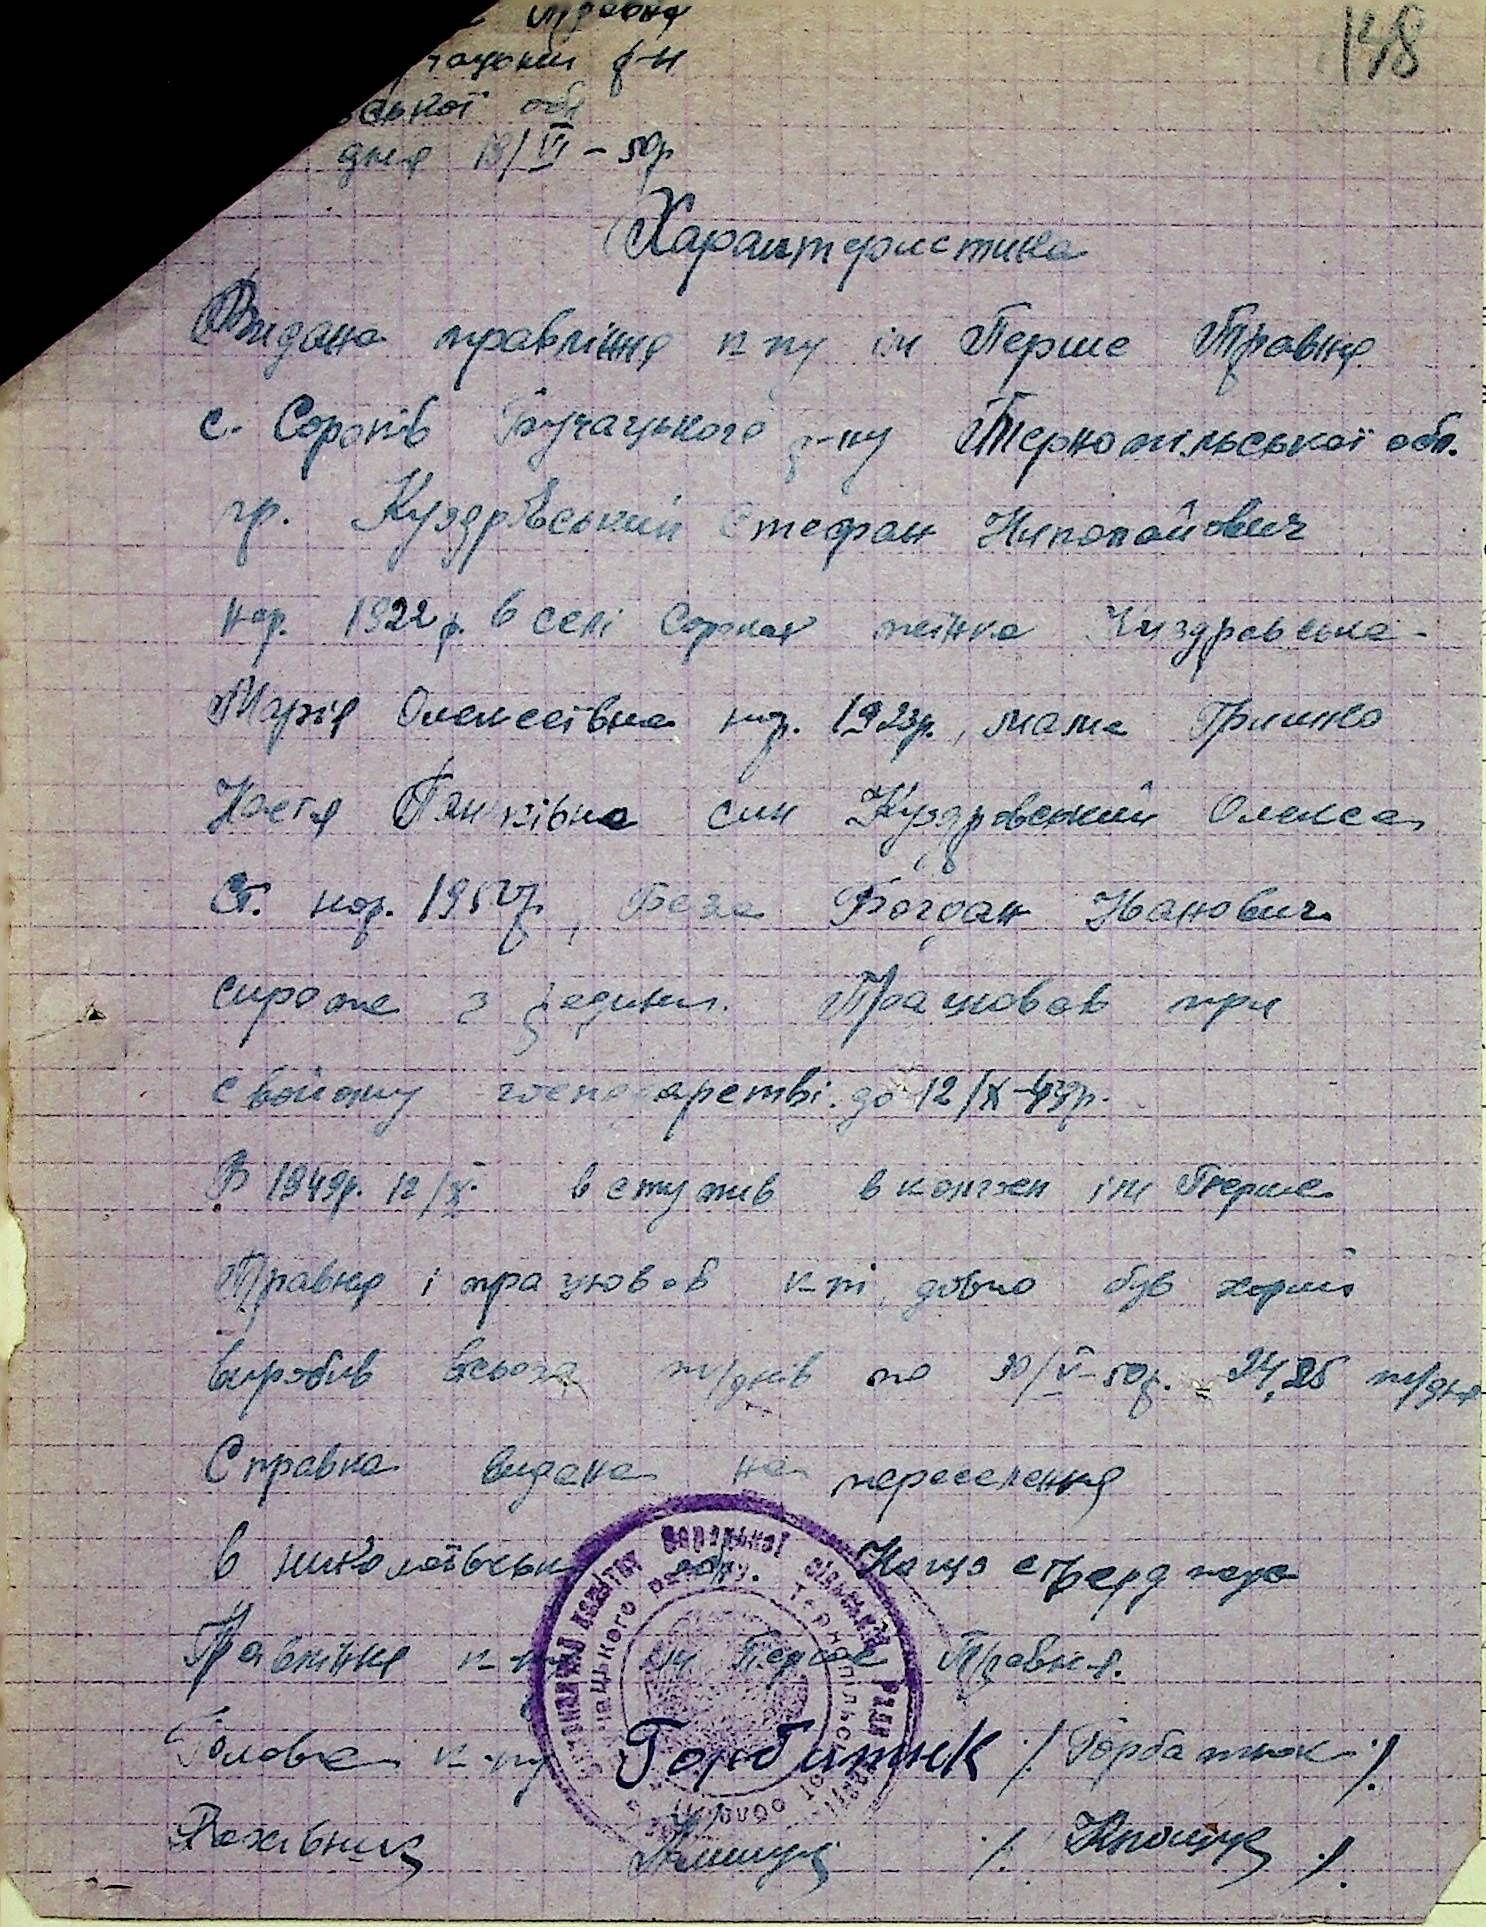 Травня
р-н
ської обл
дня 13/VI – 50р
148
Характеристика
Видана правління к-пу ім Перше Травня
с. Сороків Бучацького р-ну Тернопільської обл.
гр. Куздрівський Стефан Николайович
нар. 1922 р. в селі Сороках жінка Куздровська
Марія Олексеївна нар. 1923р., мама Гринко
Настя Паньківна син Куздровський Олекса
Ст. нар. 1950р, Богдан Іванович
сирота з родини. Працював при
свойому господарстві. до 12/IX-49р.
В 1949р. 12/IX вступив в колгосп ім Перше
Травня і працював в к-пі, довго був хорий
виробив всього т/днів по 30/V-50р. – 24,25 т/дня
Справка видана на переселення
в николаївську обл. На що стверджує
Правління к-пу ім Перше Травня.
Голова к-пу Горбатюк /Горбатюк/.
Рахівник /. /.
Виконавчий комітет Сороцької сільської Ради
Бучацького району, Тернопільської області